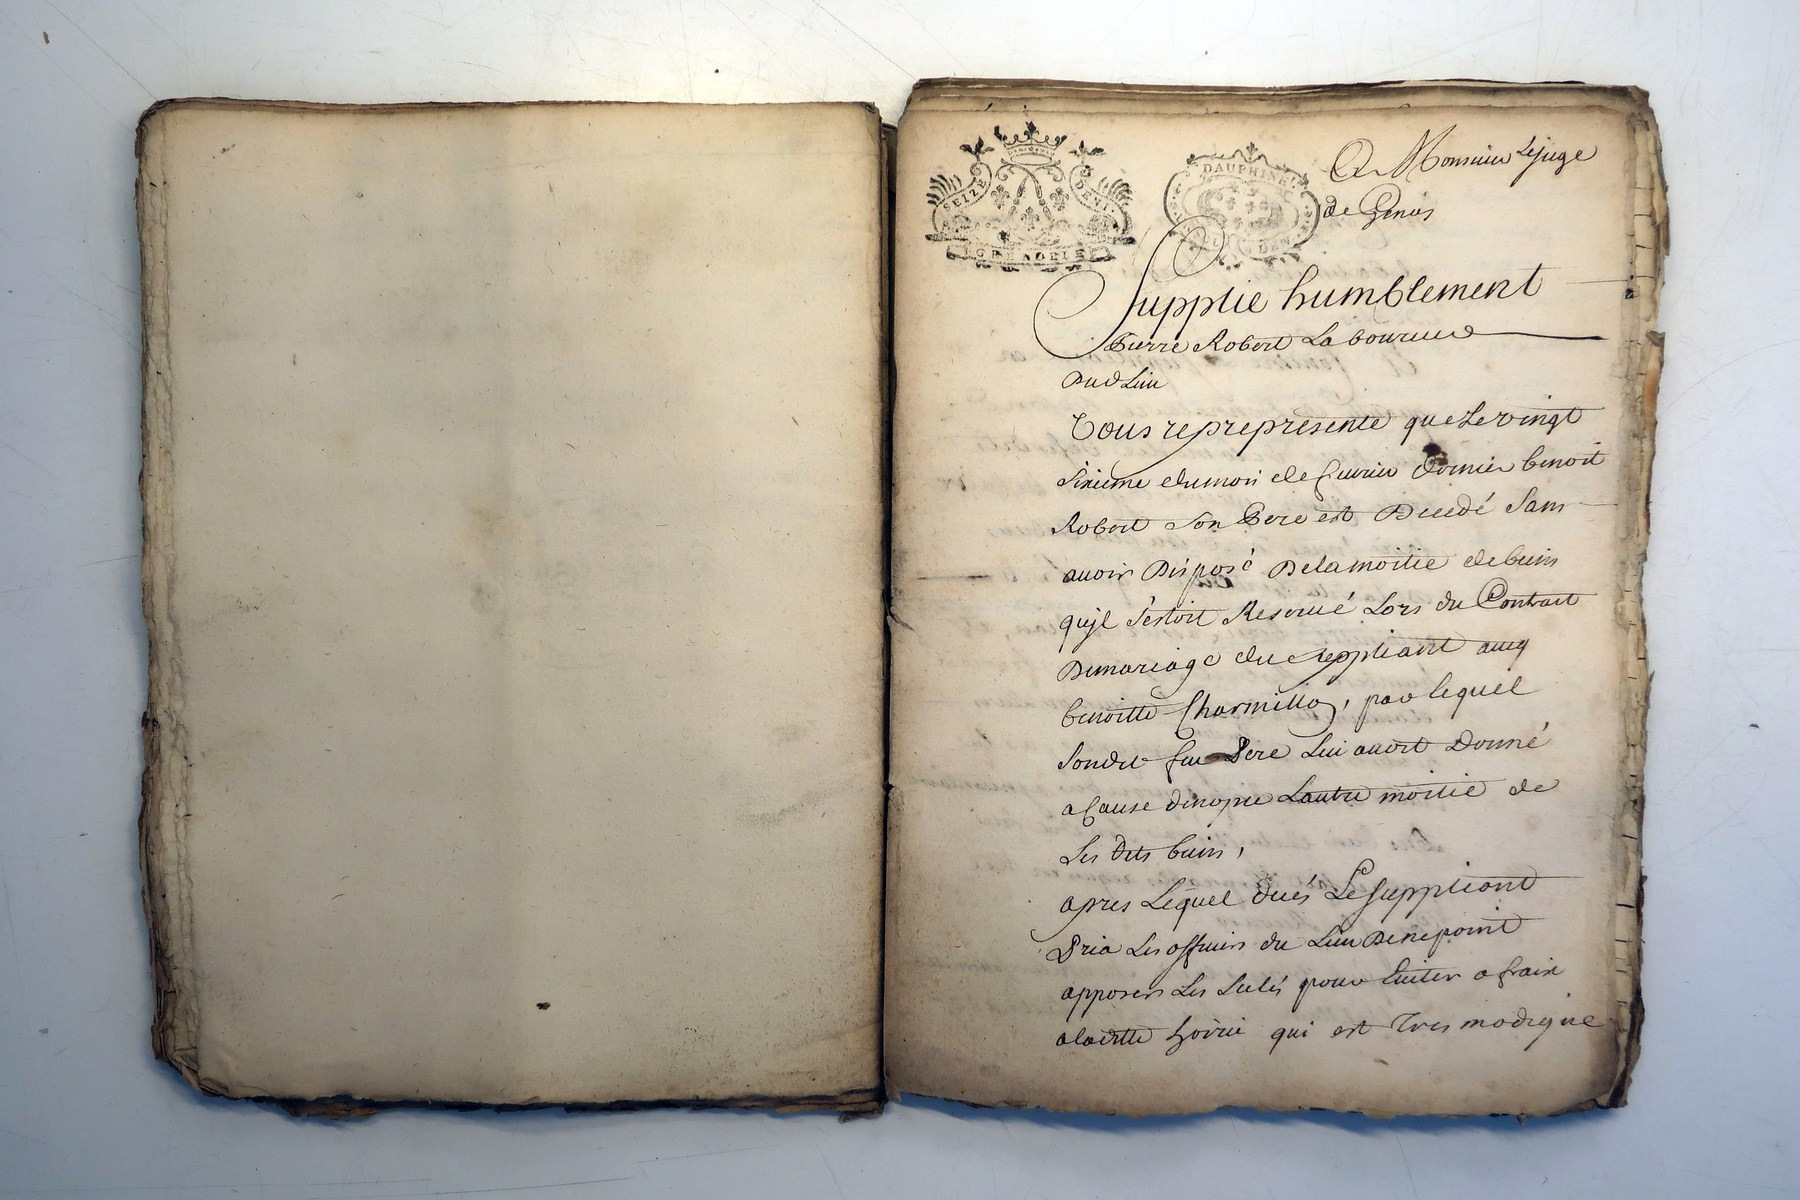 SEIZE DENI.
GRENOBLE
DAUPHINE.
DEN.
A Monsieur Lejuge
de Genas
Supplie humblement
Pierre Robert Laboureur
Dud Lieu
Vous represente que Le vingt
sixieme du mois de fevrier dernier benoit
Robert son Pere est Decedé sans
avoir Disposé De la moitie de biens
qujl s'estoit Reservé Lors du Contract
De mariage du suppliant avec
benoitte Charmillon, par lequel
Son dit feu Pere Lui avoit Donné
a Cause de nopce Lautre moitié de
Ses dits biens,
apres Lequel décés Le suppliant
Pria Les officiers du Lieu De ne point
apposer Les scelés pour Eviter a frais
a laditte hoirie qui est Tres modique